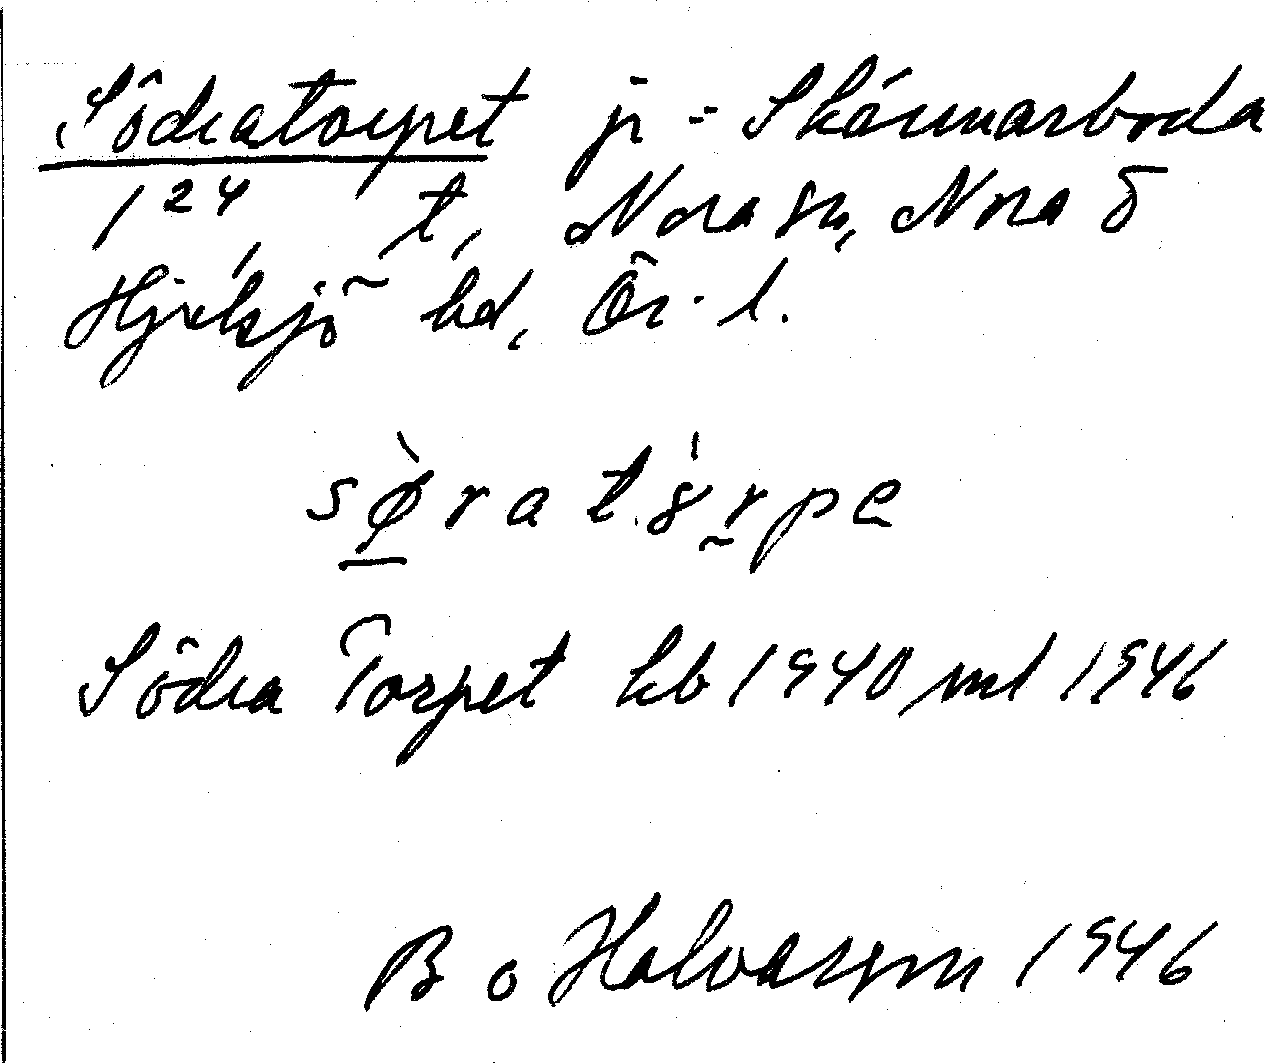 Södratorpet jr = Skärmarboda
1²⁴, t, Nora sn, Nora o
Hjulsjö bd, Ör. l.
sø̀ratɤ́rpe
Södra Torpet kb 1940, ml 1946
B o Halvarson 1946